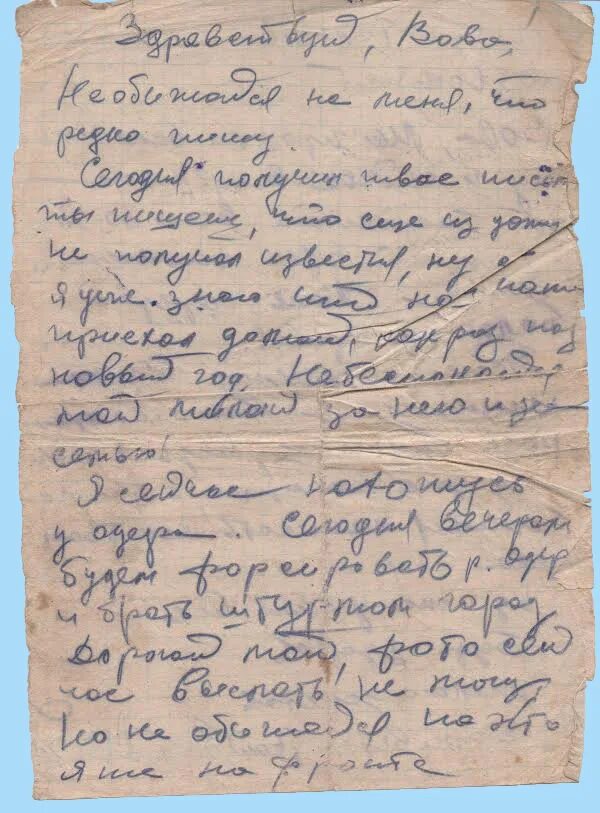 Здравствуй, Вова,
Не обижайся на меня, что
редко пишу.
Сегодня получил твое письм
ты пишешь, что еще из дому
не получал известия, ну а
я уже знаю что наш папа
приехал домой, как раз под
новый год. Не беспокойся
мой милый за него и за
семью!
Я сейчас нахожусь
у Одера. Сегодня вечером
будем форсировать р. Одер
и брать штурмом город
Дорогой мой, фото сей
час выслать не могу,
но не обижайся на это
я же на фронте